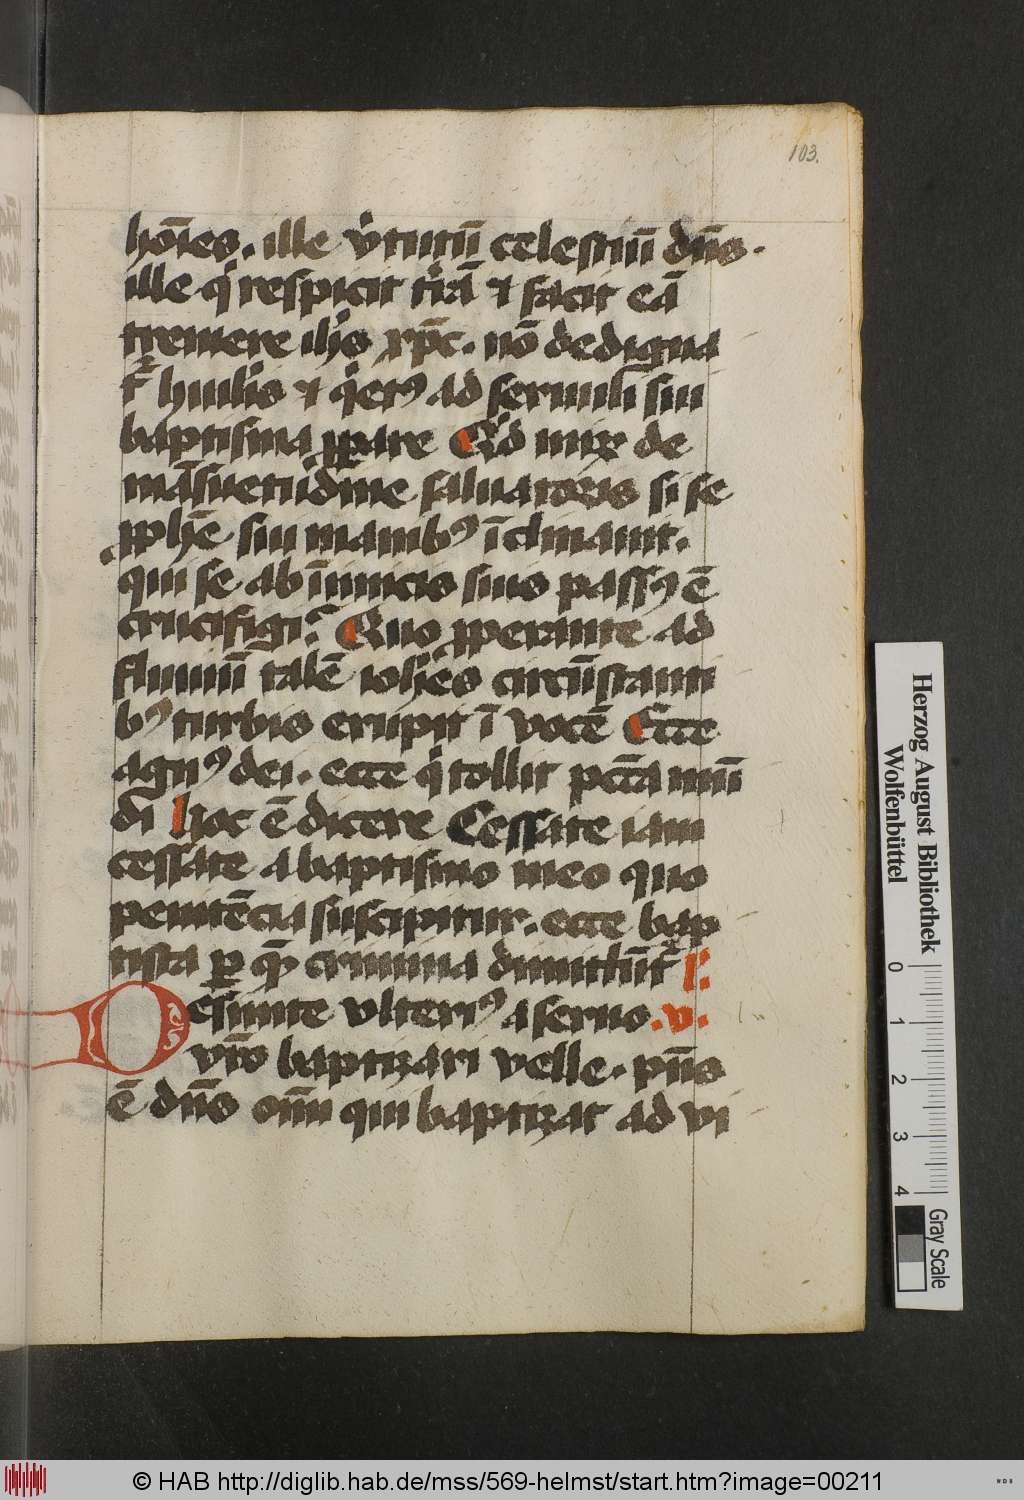 103.
hōı̄es . ille v̓tutū celestiū dn̄s .
ille q̓ respicit t̓rā ⁊ facit eā
tremere ih̓s xp̄c . nō dedigna
t᷑ huilis ⁊ q̓etꝰ ad seruuli sui
baptisma ꝓꝑare Qd̓ miꝝ de
māsuetudīne saluatoris si se
ꝓphē sui manibꝰ īclinauit .
qui se ab īnimicis suis passꝰ ē
crucifigi . Quo ꝓperante ad
fluuiū talē ioh̓es circūstanti
bꝰ turbis erupit ī vocē Ecce
agnꝰ dei . ecce q̓ tollit pctā mū
di Hoc ē dicere Cessate iam
cessate a baptismo meo quo
penitēcia suscipitur . ecce bap
tista ꝑ quē crimina dimittūt᷑ r :
Desinite vlteriꝰ a seruo . v .
vr̄o baptizari velle . pn̄s
ē dn̄s oīm qui baptizat ad vi
Herzog August Bibliothek
Wolfenbüttel
0 1 2 3 4
Gray Scale
© HAB http://diglib.hab.de/mss/569-helmst/start.htm?image=00211